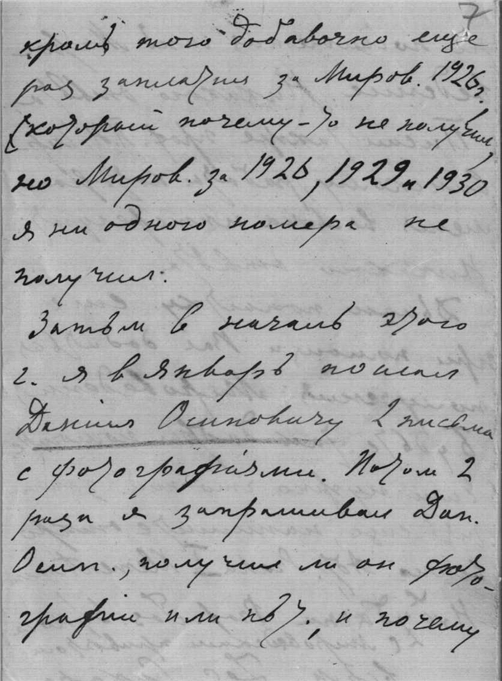 7
кромѣ того добавочно еще
раз заплатил за Миров. 1926г.,
(который почему-то не получил,
но Миров. за 1926, 1929 и 1930
я ни одного номера не
получил.
Затѣм в началѣ этого
г. я в Январѣ послал
Данiил Осиповичу 2 письма
с фотографiями. Потом 2
раза я запрашивал Дан.
Осип., получил ли он фото-
графiи или нѣт, и почему